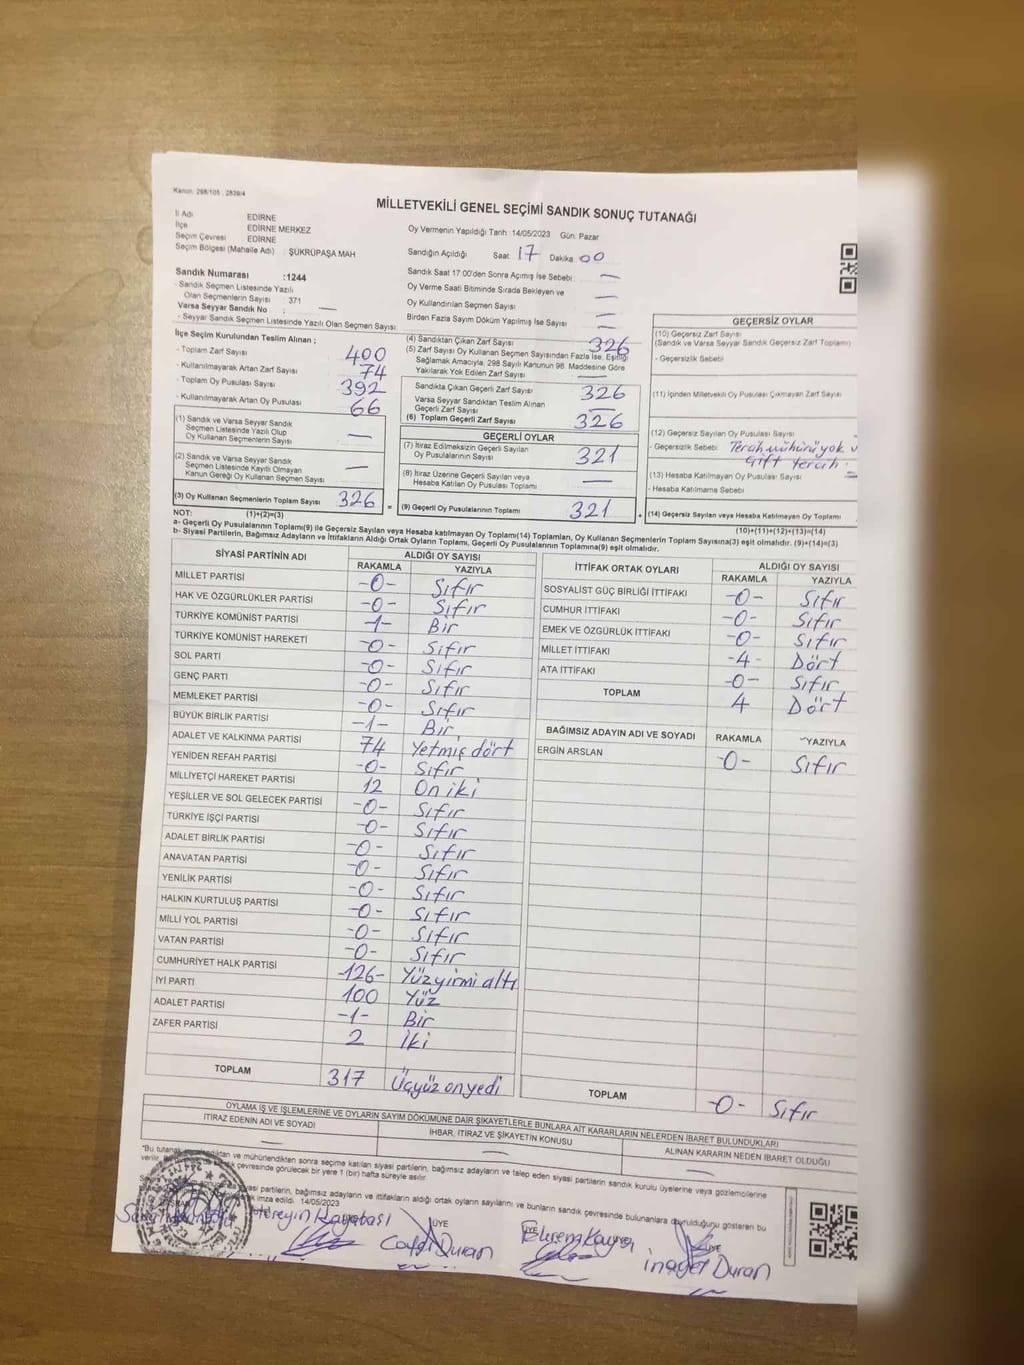 Kanun: 298/105 , 2839/4
MİLLETVEKİLİ GENEL SEÇİMİ SANDIK SONUÇ TUTANAĞI
İl Adı EDİRNE
İlçe EDİRNE MERKEZ
Seçim Çevresi EDİRNE
Seçim Bölgesi (Mahalle Adı) : ŞÜKRÜPAŞA MAH
Oy Vermenin Yapıldığı Tarih :14/05/2023 Gün: Pazar
Sandığın Açıldığı Saat 17 Dakika 00
Sandık Numarası :1244
- Sandık Seçmen Listesinde Yazılı
Olan Seçmenlerin Sayısı 371
Varsa Seyyar Sandık No : —
- Seyyar Sandık Seçmen Listesinde Yazılı Olan Seçmen Sayısı
Sandık Saat 17.00'den Sonra Açımış İse Sebebi : —
Oy Verme Saati Bitiminde Sırada Bekleyen ve
Oy Kullandırılan Seçmen Sayısı —
Birden Fazla Sayım Döküm Yapılmış İse Sayısı —
İlçe Seçim Kurulundan Teslim Alınan ;
- Toplam Zarf Sayısı 400
- Kullanılmayarak Artan Zarf Sayısı 74
- Toplam Oy Pusulası Sayısı 392
- Kullanılmayarak Artan Oy Pusulası 66
(1) Sandık ve Varsa Seyyar Sandık
Seçmen Listesinde Yazılı Olup
Oy Kullanan Seçmenlerin Sayısı —
(2) Sandık ve Varsa Seyyar Sandık
Seçmen Listesinde Kayıtlı Olmayan
Kanun Gereği Oy Kullanan Seçmen Sayısı —
(3) Oy Kullanan Seçmenlerin Toplam Sayısı 326
(1)+(2)=(3)
(4) Sandıktan Çıkan Zarf Sayısı 326
(5) Zarf Sayısı Oy Kullanan Seçmen Sayısından Fazla İse, Eşitliği
Sağlamak Amacıyla, 298 Sayılı Kanunun 98. Maddesine Göre
Yakılarak Yok Edilen Zarf Sayısı —
Sandıkta Çıkan Geçerli Zarf Sayısı 326
Varsa Seyyar Sandıktan Teslim Alınan
Geçerli Zarf Sayısı —
(6) Toplam Geçerli Zarf Sayısı 326
GEÇERLİ OYLAR
(7) İtiraz Edilmeksizin Geçerli Sayılan
Oy Pusulalarının Sayısı 321
(8) İtiraz Üzerine Geçerli Sayılan veya
Hesaba Katılan Oy Pusulası Toplamı —
(9) Geçerli Oy Pusulalarının Toplamı 321
GEÇERSİZ OYLAR
(10) Geçersiz Zarf Sayısı
(Sandık ve Varsa Seyyar Sandık Geçersiz Zarf Toplamı)
- Geçersizlik Sebebi
(11) İçinden Milletvekili Oy Pusulası Çıkmayan Zarf Sayısı
(12) Geçersiz Sayılan Oy Pusulası Sayısı
- Geçersizlik Sebebi Tercih mührü yok
Çift tercih
(13) Hesaba Katılmayan Oy Pusulası Sayısı
- Hesaba Katılmama Sebebi
(14) Geçersiz Sayılan veya Hesaba Katılmayan Oy Toplamı
(10)+(11)+(12)+(13)=(14)
NOT:
a- Geçerli Oy Pusulalarının Toplamı(9) ile Geçersiz Sayılan veya Hesaba katılmayan Oy Toplamı(14) Toplamları, Oy Kullanan Seçmenlerin Toplam Sayısına(3) eşit olmalıdır. (9)+(14)=(3)
b- Siyasi Partilerin, Bağımsız Adayların ve İttifakların Aldığı Ortak Oyların Toplamı, Geçerli Oy Pusulalarının Toplamına(9) eşit olmalıdır.
SİYASİ PARTİNİN ADI ALDIĞI OY SAYISI
RAKAMLA YAZIYLA
MİLLET PARTİSİ -0- Sıfır
HAK VE ÖZGÜRLÜKLER PARTİSİ -0- Sıfır
TÜRKİYE KOMÜNİST PARTİSİ -1- Bir
TÜRKİYE KOMÜNİST HAREKETİ -0- Sıfır
SOL PARTİ -0- Sıfır
GENÇ PARTİ -0- Sıfır
MEMLEKET PARTİSİ -0- Sıfır
BÜYÜK BİRLİK PARTİSİ -1- Bir
ADALET VE KALKINMA PARTİSİ 74 Yetmiş dört
YENİDEN REFAH PARTİSİ -0- Sıfır
MİLLİYETÇİ HAREKET PARTİSİ 12 On iki
YEŞİLLER VE SOL GELECEK PARTİSİ -0- Sıfır
TÜRKİYE İŞÇİ PARTİSİ -0- Sıfır
ADALET BİRLİK PARTİSİ -0- Sıfır
ANAVATAN PARTİSİ -0- Sıfır
YENİLİK PARTİSİ -0- Sıfır
HALKIN KURTULUŞ PARTİSİ -0- Sıfır
MİLLİ YOL PARTİSİ -0- Sıfır
VATAN PARTİSİ -0- Sıfır
CUMHURİYET HALK PARTİSİ -126- Yüzyirmi altı
İYİ PARTİ 100 Yüz
ADALET PARTİSİ -1- Bir
ZAFER PARTİSİ 2 İki
TOPLAM 317 Üçyüz onyedi
İTTİFAK ORTAK OYLARI ALDIĞI OY SAYISI
RAKAMLA YAZIYLA
SOSYALİST GÜÇ BİRLİĞİ İTTİFAKI -0- Sıfır
CUMHUR İTTİFAKI -0- Sıfır
EMEK VE ÖZGÜRLÜK İTTİFAKI -0- Sıfır
MİLLET İTTİFAKI -4- Dört
ATA İTTİFAKI -0- Sıfır
TOPLAM 4 Dört
BAĞIMSIZ ADAYIN ADI VE SOYADI RAKAMLA YAZIYLA
ERGİN ARSLAN -0- Sıfır
TOPLAM -0- Sıfır
OYLAMA İŞ VE İŞLEMLERİNE VE OYLARIN SAYIM DÖKÜMÜNE DAİR ŞİKAYETLERLE BUNLARA AİT KARARLARIN NELERDEN İBARET BULUNDUKLARI
İTİRAZ EDENİN ADI VE SOYADI İHBAR, İTİRAZ VE ŞİKAYETİN KONUSU ALINAN KARARIN NEDEN İBARET OLDUĞU
— — —
ve mühürlendikten sonra seçime katılan siyasi partilerin, bağımsız adayların ve talep eden siyasi partilerin sandık kurulu üyelerine veya gözlemcilerine
verilir. çevresinde görülecek bir yere 1 (bir) hafta süreyle asılır.
siyasi partilerin, bağımsız adayların ve ittifakların aldığı ortak oyların sayılarını ve bunların sandık çevresinde bulunanlara duyrulduğunu gösteren bu
imza edildi. 14/05/2023
ÜYE ÜYE ÜYE
Hüseyin Kayabası Çağrı Duran Ekrem Kaya inayet Duran